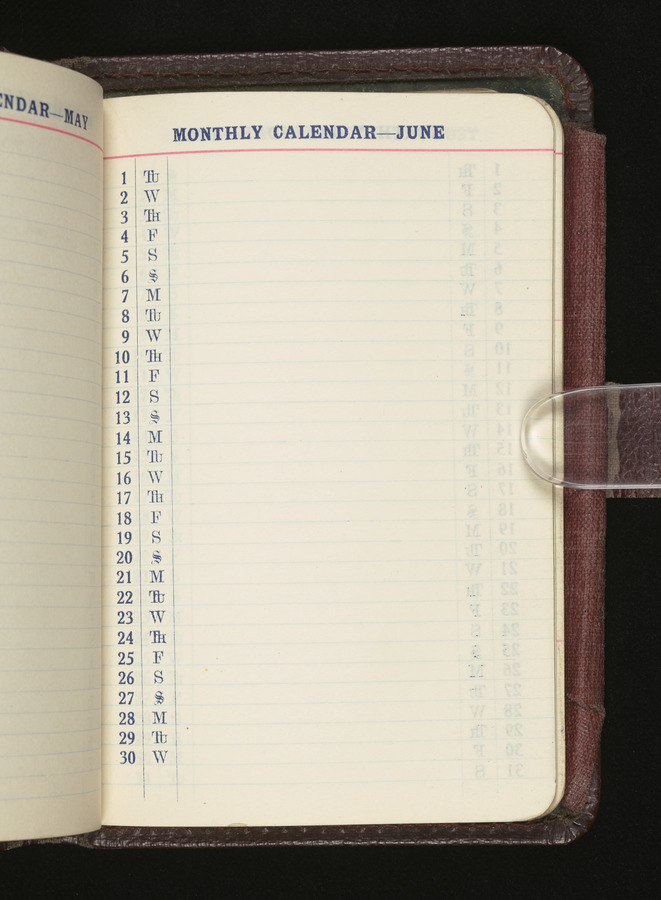 ENDAR—MAY
MONTHLY CALENDAR—JUNE
1 TU
2 W
3 TH
4 F
5 S
6 S
7 M
8 TU
9 W
10 TH
11 F
12 S
13 S
14 M
15 TU
16 W
17 TH
18 F
19 S
20 S
21 M
22 TU
23 W
24 TH
25 F
26 S
27 S
28 M
29 TU
30 W